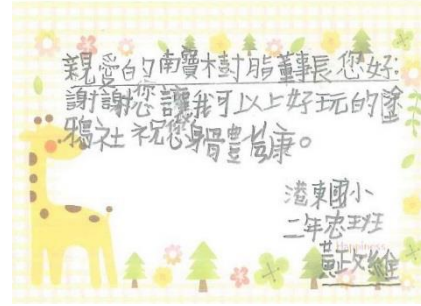 親愛的南寶樹脂董事長您好:
謝謝您讓我可以上好玩的塗
鴉社祝您身體健康。
港東國小
二年忠班
Happiness
黃文維